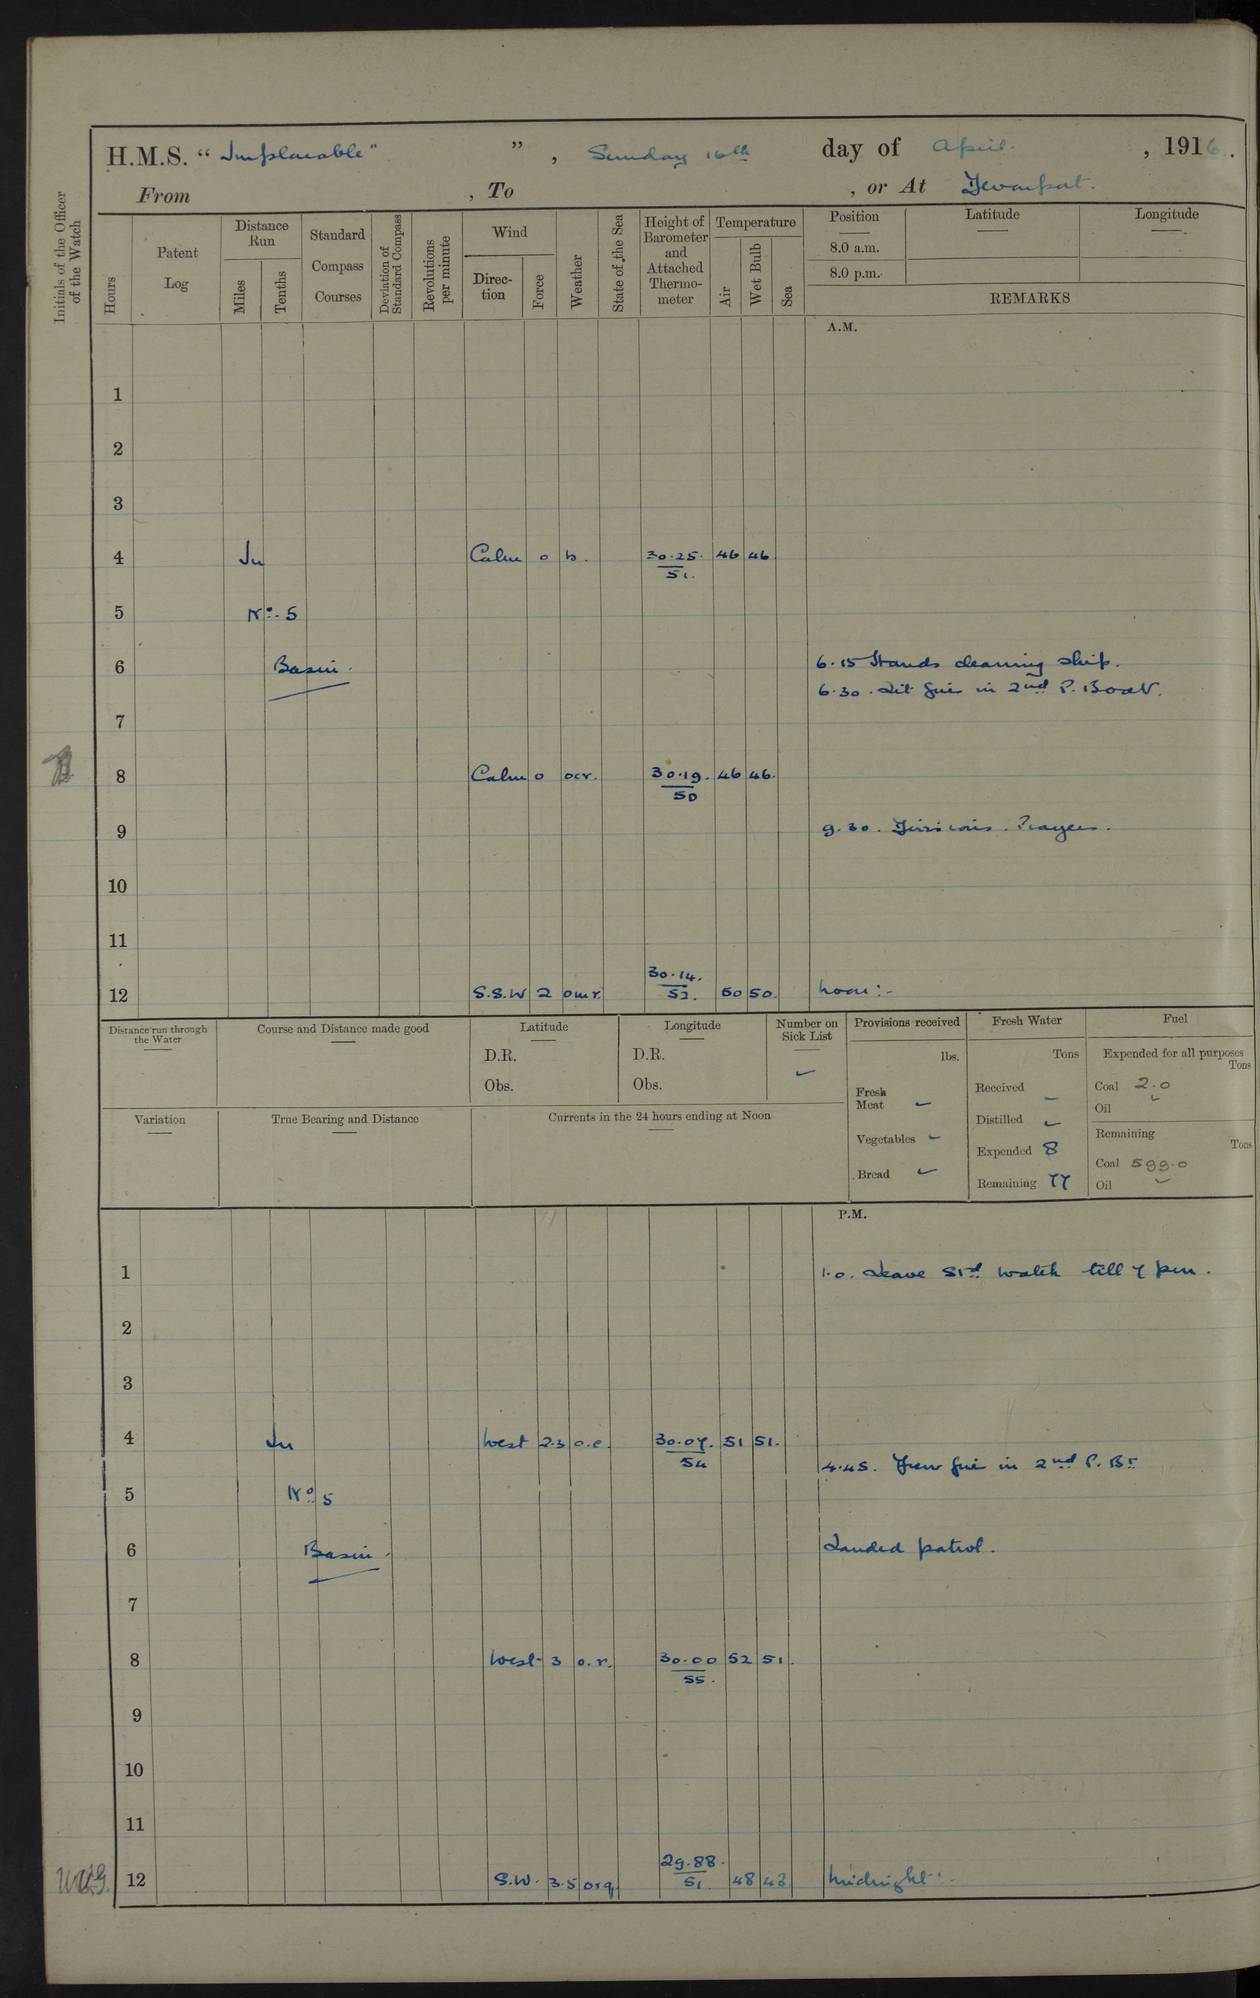 H.M.S. “ Implacable" ” , Sunday 16th day of April. , 1916.
From , To , or At Devonport.
Initials of the Officer of the Watch
Hours
Patent Log
Distance Run
Miles
Tenths
Standard Compass Courses
Deviation of Standard Compass
Revolutions per minute
Wind
Direction
Force
Weather
State of the Sea
Height of Barometer and Attached Thermometer
Temperature
Air
Wet Bulb
Sea
Position Latitude Longitude
8.0 a.m.
8.0 p.m.
REMARKS
A.M.
1
2
3
4 In Calm 0 b. 30.25. 46 46
51.
5 No. 5
6 Basin. 6.15 Hands cleaning ship.
6.30. Lit fire in 2nd P. Boat.
7
8 Calm 0 ocr. 30.19. 46 46.
50
9 9.30. Divisions. Prayers.
10
11
12 S.S.W 2 omr. 30.14. 50 50. noon:-
52.
Distance run through the Water
Course and Distance made good
Latitude
D.R.
Obs.
Longitude
D.R.
Obs.
Number on Sick List
Variation
True Bearing and Distance
Currents in the 24 hours ending at Noon
Provisions received
lbs.
Fresh Meat
Vegetables
Bread
Fresh Water
Tons
Received
Distilled
Expended 8
Remaining 77
Fuel
Expended for all purposes
Tons
Coal 2.0
Oil
Remaining
Tons
Coal 599.0
Oil
P.M.
1 1.0. Leave Std watch till 7 pm.
2
3
4 In West 2.3 o.c. 30.07. 51 51.
54
4.45. Drew fire in 2nd P. Bt
5 No 5
6 Basin. Landed patrol.
7
8 West 3 o.r. 30.00 52 51.
55.
9
10
11
12 S.W. 3.5 orq 29.88. 48 48 Midnight:-
51.